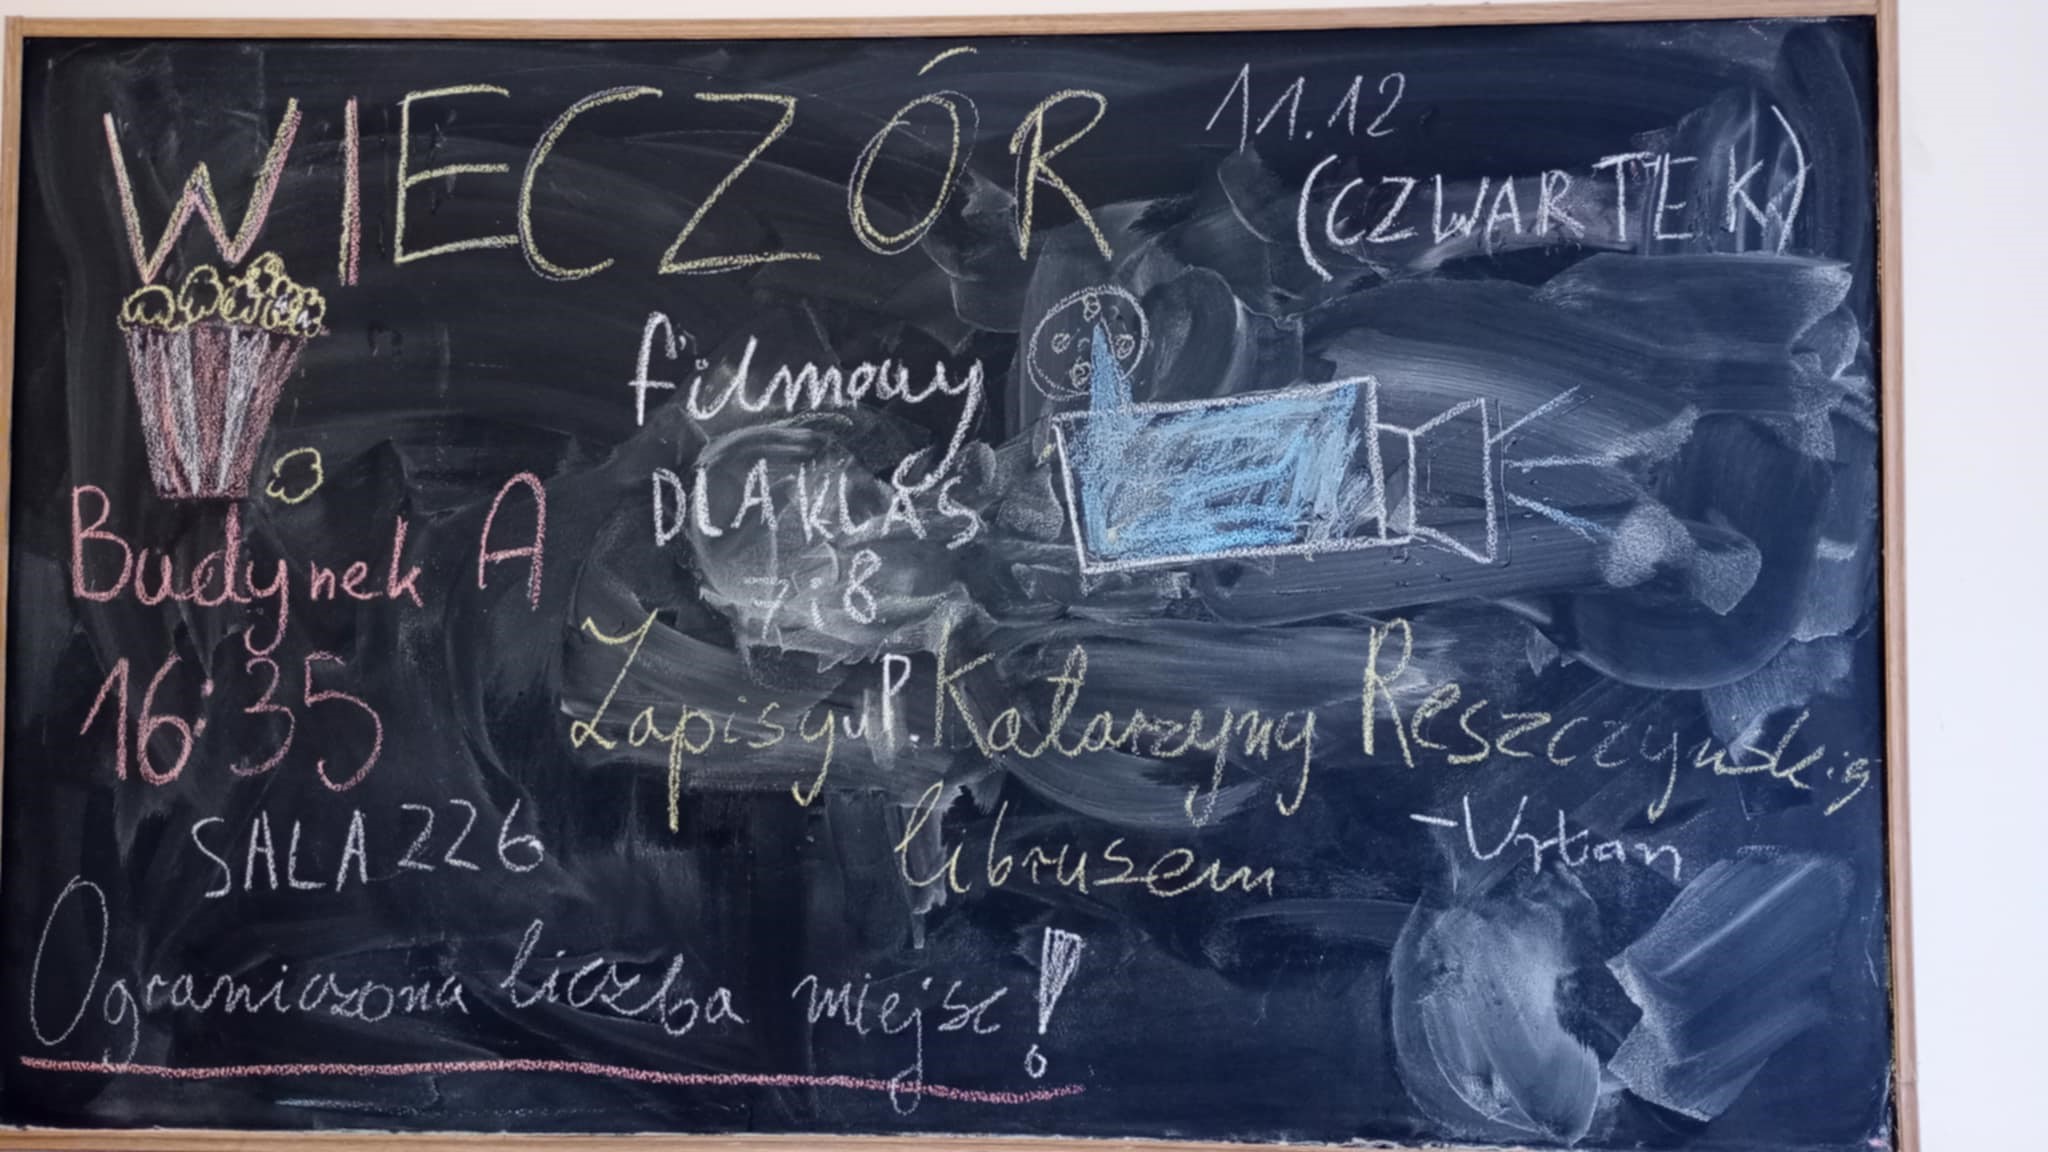 WIECZÓR
11.12
(CZWARTEK)
filmowy
DLA KLAS
7 i 8
Budynek A
16:35
SALA 226
Zapisy u P. Katarzyny Reszczyńskiej
- Urban
librusem
Ograniczona liczba miejsc!